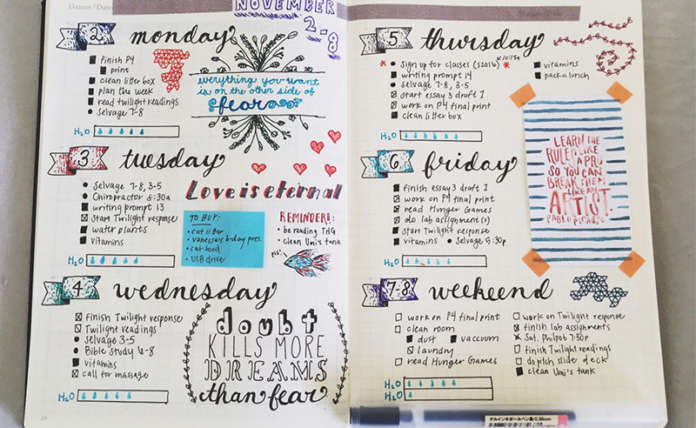 NOVEMBER
2-8
2 monday
finish P4
print
clean litter box
plan the week
read twilight readings
Selvage 7-8
H2O
everything you want
is on the other side of
fear
3 tuesday
Selvage 7-8, 3-5
Chiropractor 5:30a
writing prompt 13
Start Twilight response
water plants
vitamins
H2O
Love is eternal
TO BUY:
cat litter
vanessa's b-day pres.
cat food
USB drive
REMINDERS:
be reading THG
clean Umi's tank
4 wednesday
Finish Twilight response
Twilight readings
Selvage 3-5
Bible Study 6-8
vitamins
call for massage
H2O
doubt
KILLS MORE
DREAMS
than fear
5 thursday
Sign up for classes
writing prompt 14
Selvage 7-8, 3-5
Start essay 3 draft 1
work on P4 final print
clean litter box
vitamins
pack a lunch
H2O
LEARN THE
RULES LIKE
A PRO,
SO YOU CAN
BREAK THEM
LIKE AN
ARTIST
PABLO PICASSO
6 friday
Finish essay 3 draft 1
work on P4 final print
read Hunger Games
do lab assignment(s)
Start Twilight response
vitamins
Selvage 5:30p
H2O
7-8 weekend
work on P4 final print
clean room
dust
vaccuum
laundry
read Hunger Games
work on Twilight response
finish lab assignments
Sat. Philpob 7:30p
finish Twilight readings
clean Umi's tank
H2O
H2O